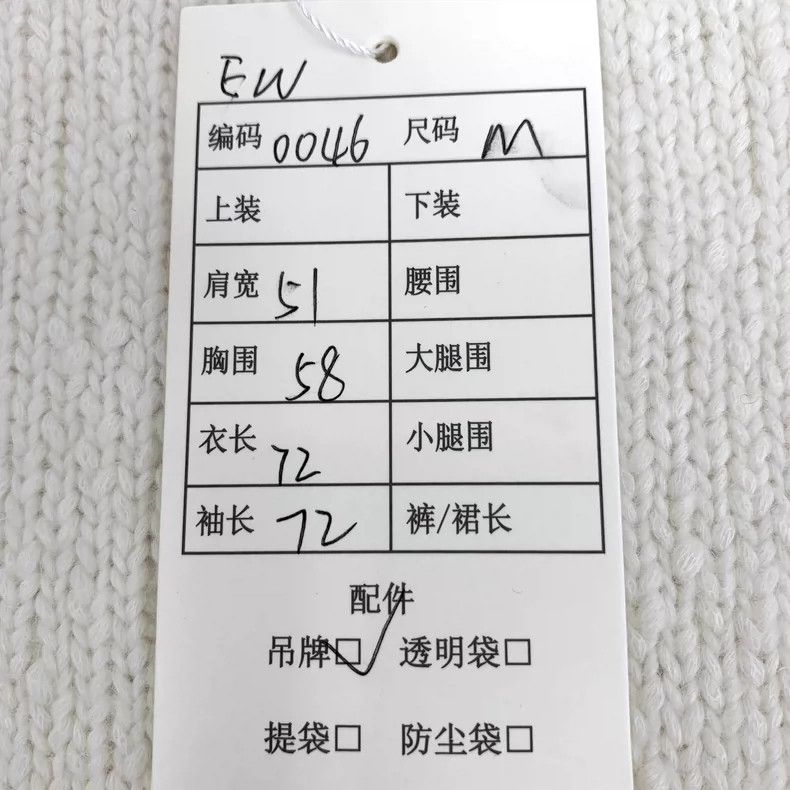 EW
编码 0046 尺码 M
上装 下装
肩宽 51 腰围
胸围 58 大腿围
衣长 72 小腿围
袖长 72 裤/裙长
配件
吊牌□✓ 透明袋□
提袋□ 防尘袋□